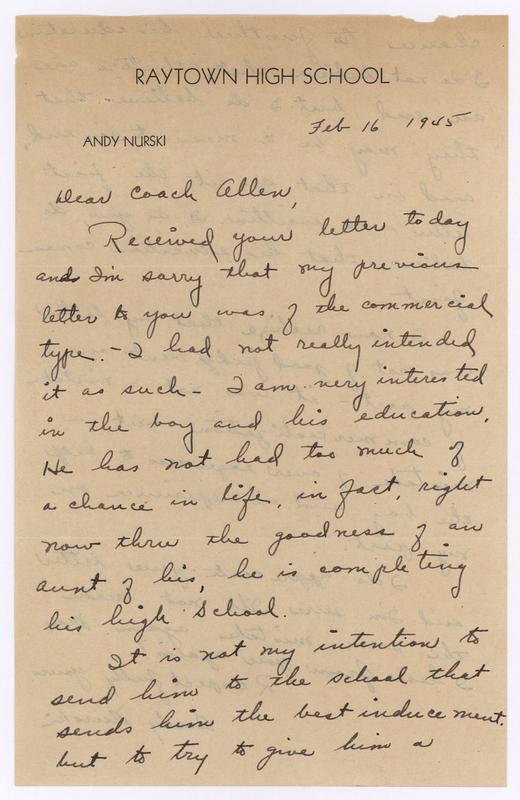 RAYTOWN HIGH SCHOOL
Feb 16 1945
ANDY NURSKI
Dear Coach Allen,
Received your letter today
and I'm sorry that my previous
letter to you was of the commercial
type. - I had not really intended
it as such - I am very interested
in the boy and his education.
He has not had too much of
a chance in life, in fact, right
now thru the goodness of an
aunt of his, he is completing
his high school.
It is not my intention to
send him to the school that
sends him the best inducement.
but to try to give him a